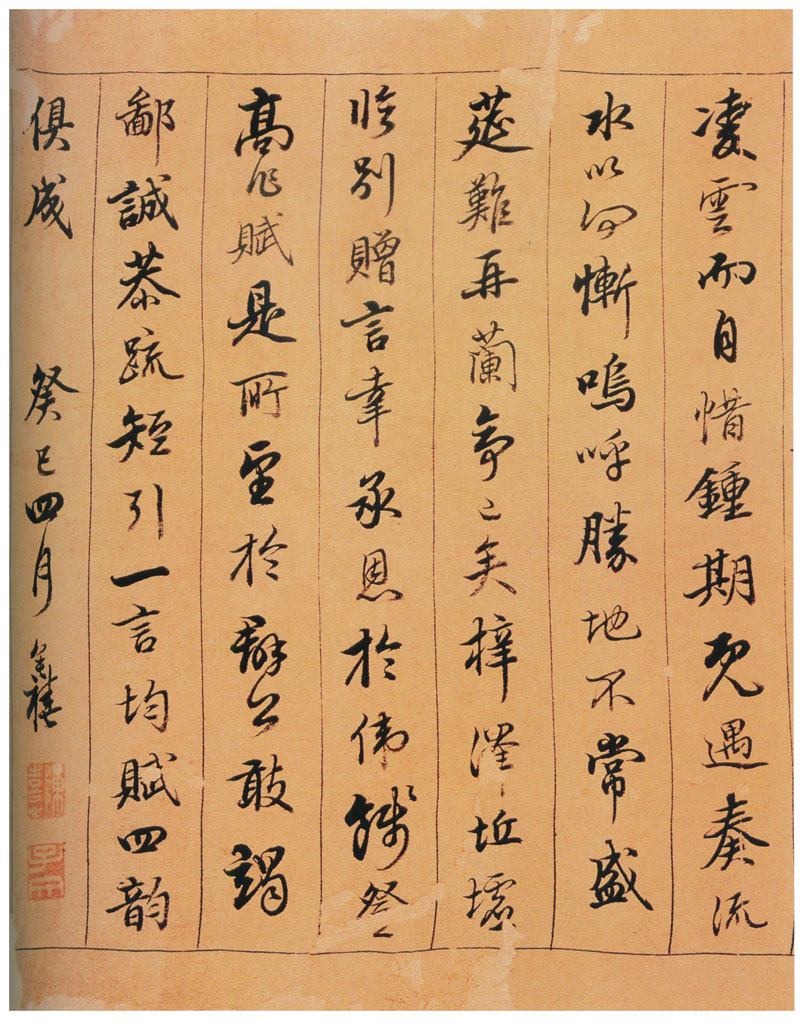 凌雲而自惜鍾期既遇奏流
水以何慚嗚呼勝地不常盛
筵難再蘭亭已矣梓澤坵墟
臨別贈言幸承恩於偉餞登
高作賦是所望於群公敢竭
鄙誠恭疏短引一言均賦四韻
俱成 癸巳四月 奕禧
子文